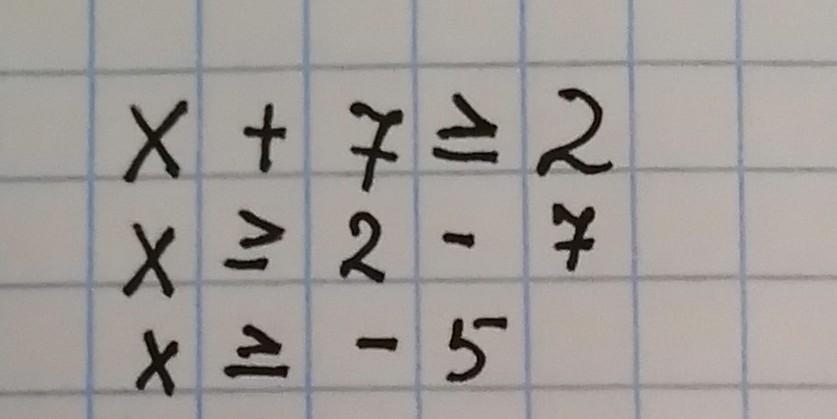 x + 7 ≥ 2
x ≥ 2 - 7
x ≥ - 5